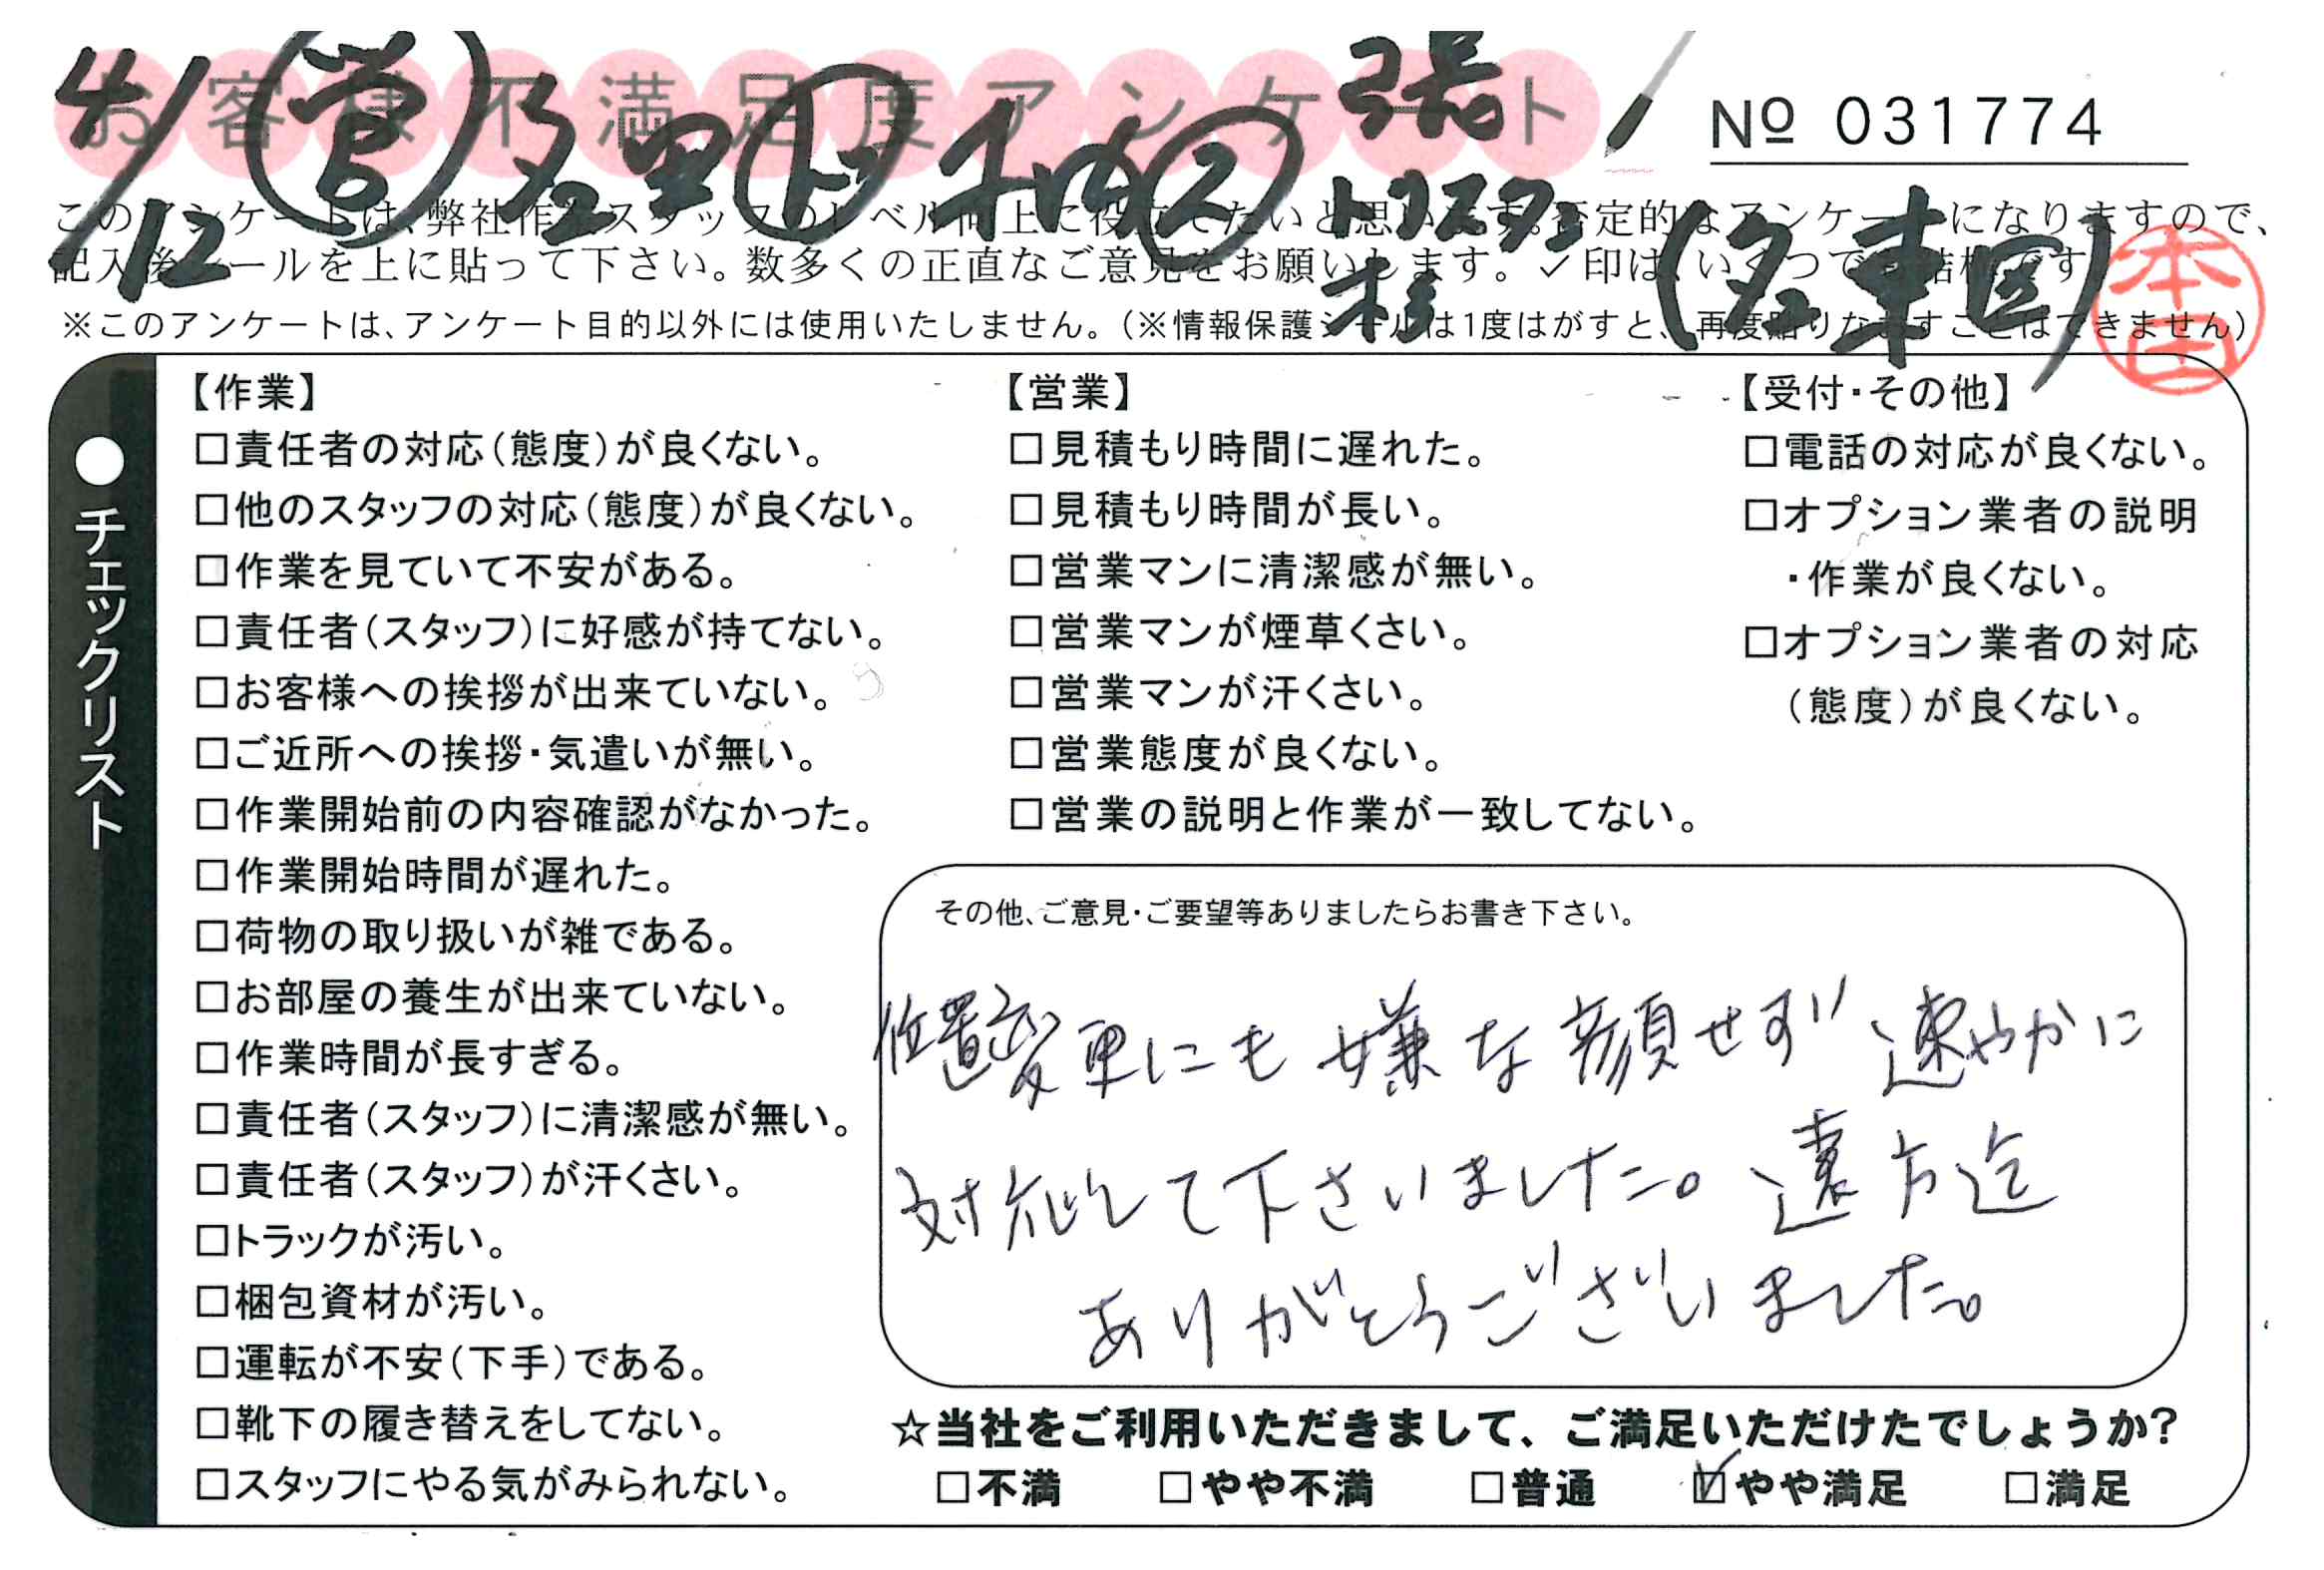 お客様不満足度アンケート
№ 031774
4/12 営 名四 ト 千内 ス 張 トリスタン 杉 (名東図)
本田
このアンケートは、弊社作業スタッフのレベル向上に役立てたいと思います。否定的なアンケートになりますので、
記入後シールを上に貼って下さい。数多くの正直なご意見をお願いします。✓印は、いくつでも結構です
※このアンケートは、アンケート目的以外には使用いたしません。(※情報保護シールは1度はがすと、再度貼りなおすことはできません)
●チェックリスト
【作業】
□責任者の対応(態度)が良くない。
□他のスタッフの対応(態度)が良くない。
□作業を見ていて不安がある。
□責任者(スタッフ)に好感が持てない。
□お客様への挨拶が出来ていない。
□ご近所への挨拶・気遣いが無い。
□作業開始前の内容確認がなかった。
□作業開始時間が遅れた。
□荷物の取り扱いが雑である。
□お部屋の養生が出来ていない。
□作業時間が長すぎる。
□責任者(スタッフ)に清潔感が無い。
□責任者(スタッフ)が汗くさい。
□トラックが汚い。
□梱包資材が汚い。
□運転が不安(下手)である。
□靴下の履き替えをしてない。
□スタッフにやる気がみられない。
【営業】
□見積もり時間に遅れた。
□見積もり時間が長い。
□営業マンに清潔感が無い。
□営業マンが煙草くさい。
□営業マンが汗くさい。
□営業態度が良くない。
□営業の説明と作業が一致してない。
【受付・その他】
□電話の対応が良くない。
□オプション業者の説明
・作業が良くない。
□オプション業者の対応
(態度)が良くない。
その他、ご意見・ご要望等ありましたらお書き下さい。
位置変更にも嫌な顔せず速やかに
対応して下さいました。遠方迄
ありがとうございました。
☆当社をご利用いただきまして、ご満足いただけたでしょうか?
□不満 □やや不満 □普通 ☑やや満足 □満足